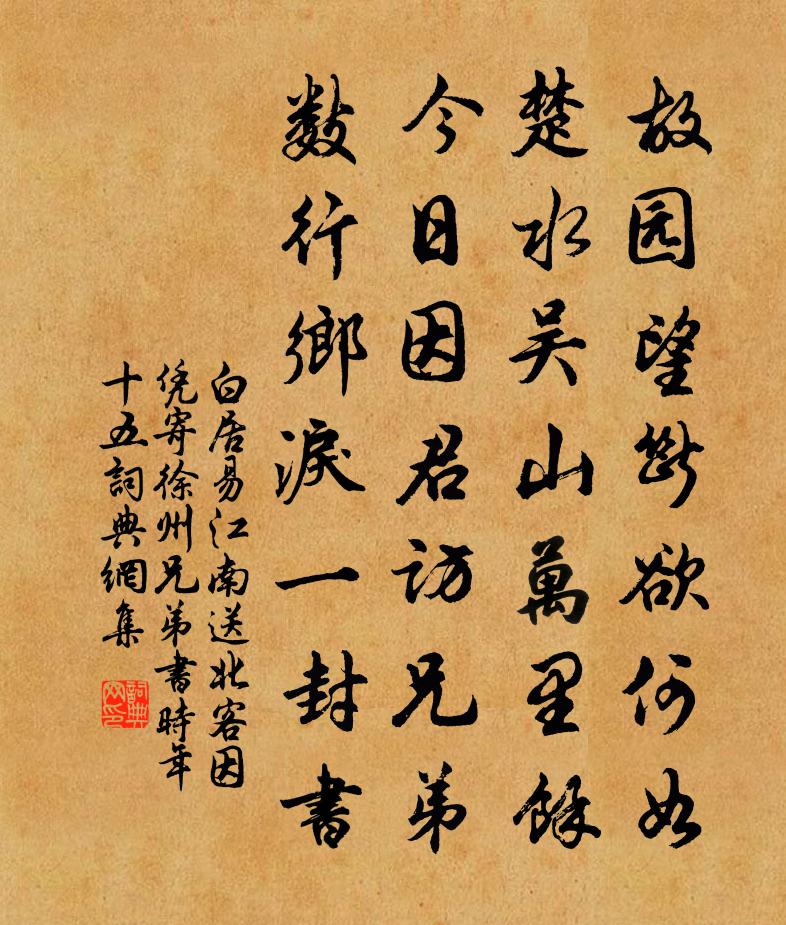 故园望斷欲何如
楚水吴山萬里餘
今日因君访兄弟
数行鄉淚一封書
白居易江南送北客因
凭寄徐州兄弟書時年
十五詞典網集
詞典网印